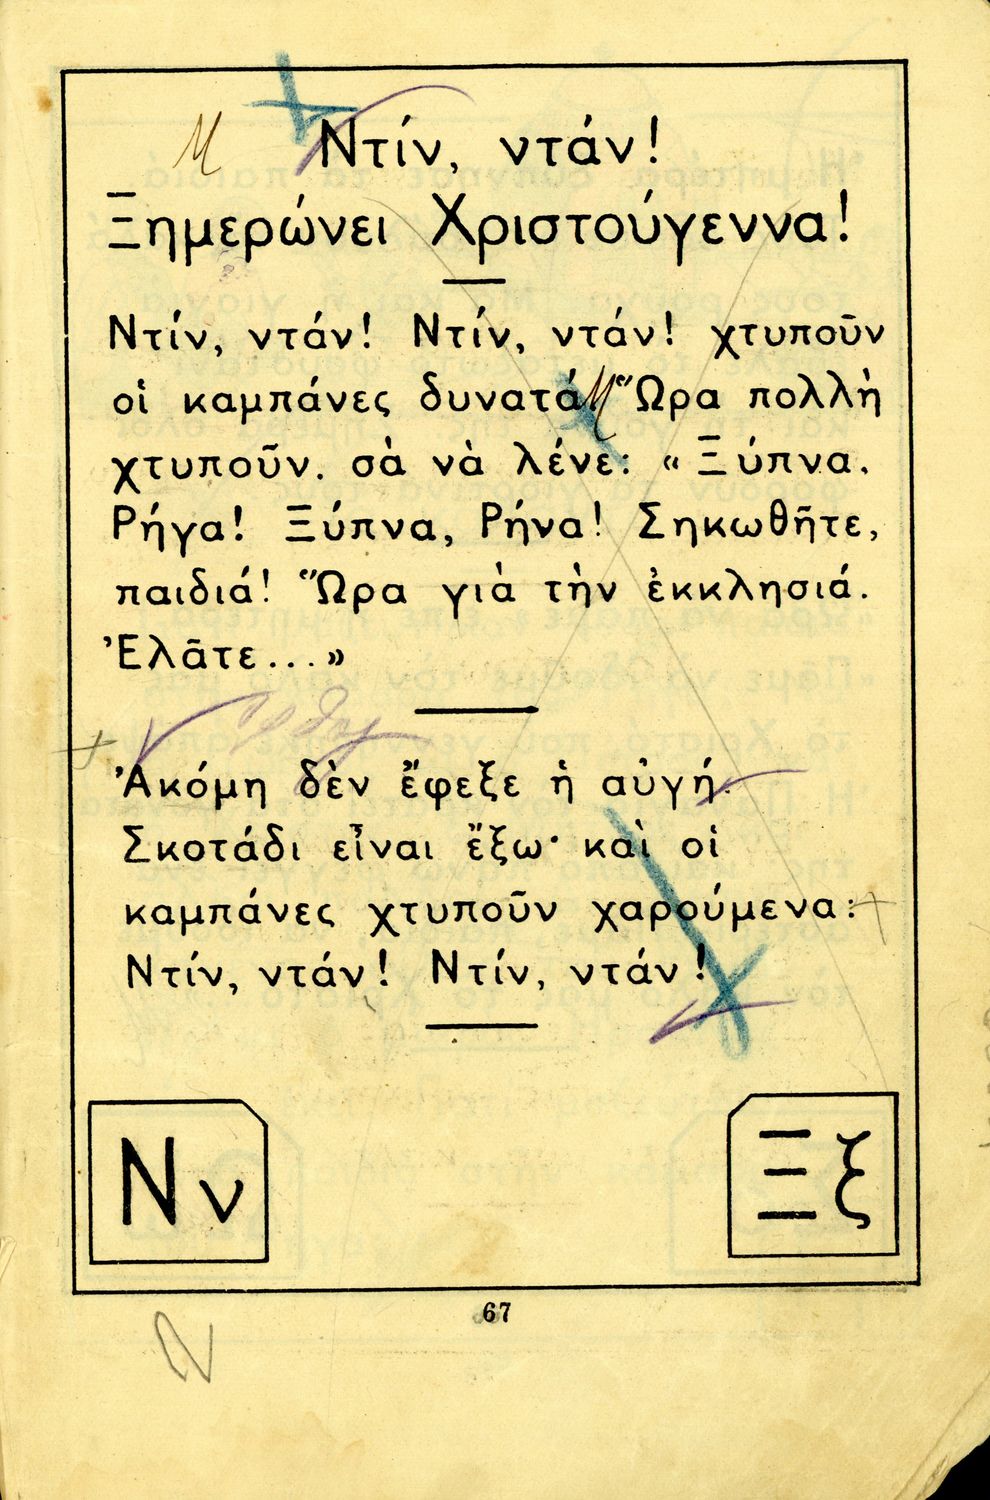 Ντίν, ντάν!
Ξημερώνει Χριστούγεννα!
Ντίν, ντάν! Ντίν, ντάν! χτυποῦν
οἱ καμπάνες δυνατά. Ὥρα πολλὴ
χτυποῦν. σὰ νὰ λένε: «Ξύπνα.
Ρήγα! Ξύπνα, Ρήνα! Σηκωθῆτε,
παιδιά! Ὥρα γιὰ τὴν ἐκκλησιά.
Ἐλᾶτε...»
Ἀκόμη δὲν ἔφεξε ἡ αὐγή.
Σκοτάδι εἶναι ἔξω· καὶ οἱ
καμπάνες χτυποῦν χαρούμενα:
Ντίν, ντάν! Ντίν, ντάν!
Νν
Ξξ
67